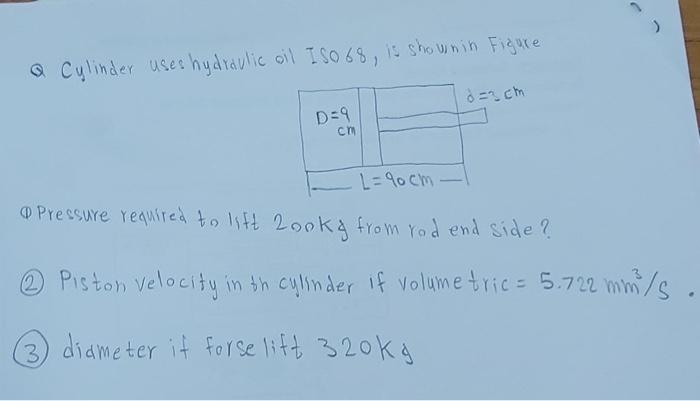 Q Cylinder uses hydraulic oil ISO 68, is shown in Figure
D=9
cm
d=3 cm
L=90cm
① Pressure required to lift 200kg from rod end side?
② Piston velocity in th cylinder if volumetric = 5.722 mm³/s.
③ diameter if forse lift 320kg